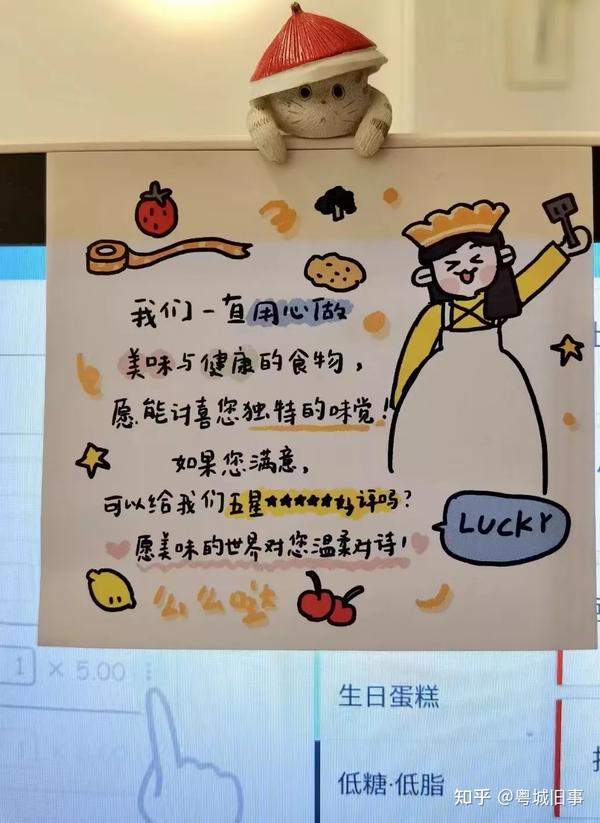 我们一直用心做
美味与健康的食物，
愿能讨喜您独特的味觉！
如果您满意，
可以给我们五星★★★★★好评吗？
愿美味的世界对您温柔对诗！
LUCKY
么么哒
1 × 5.00
生日蛋糕
低糖·低脂
知乎 @粤城旧事